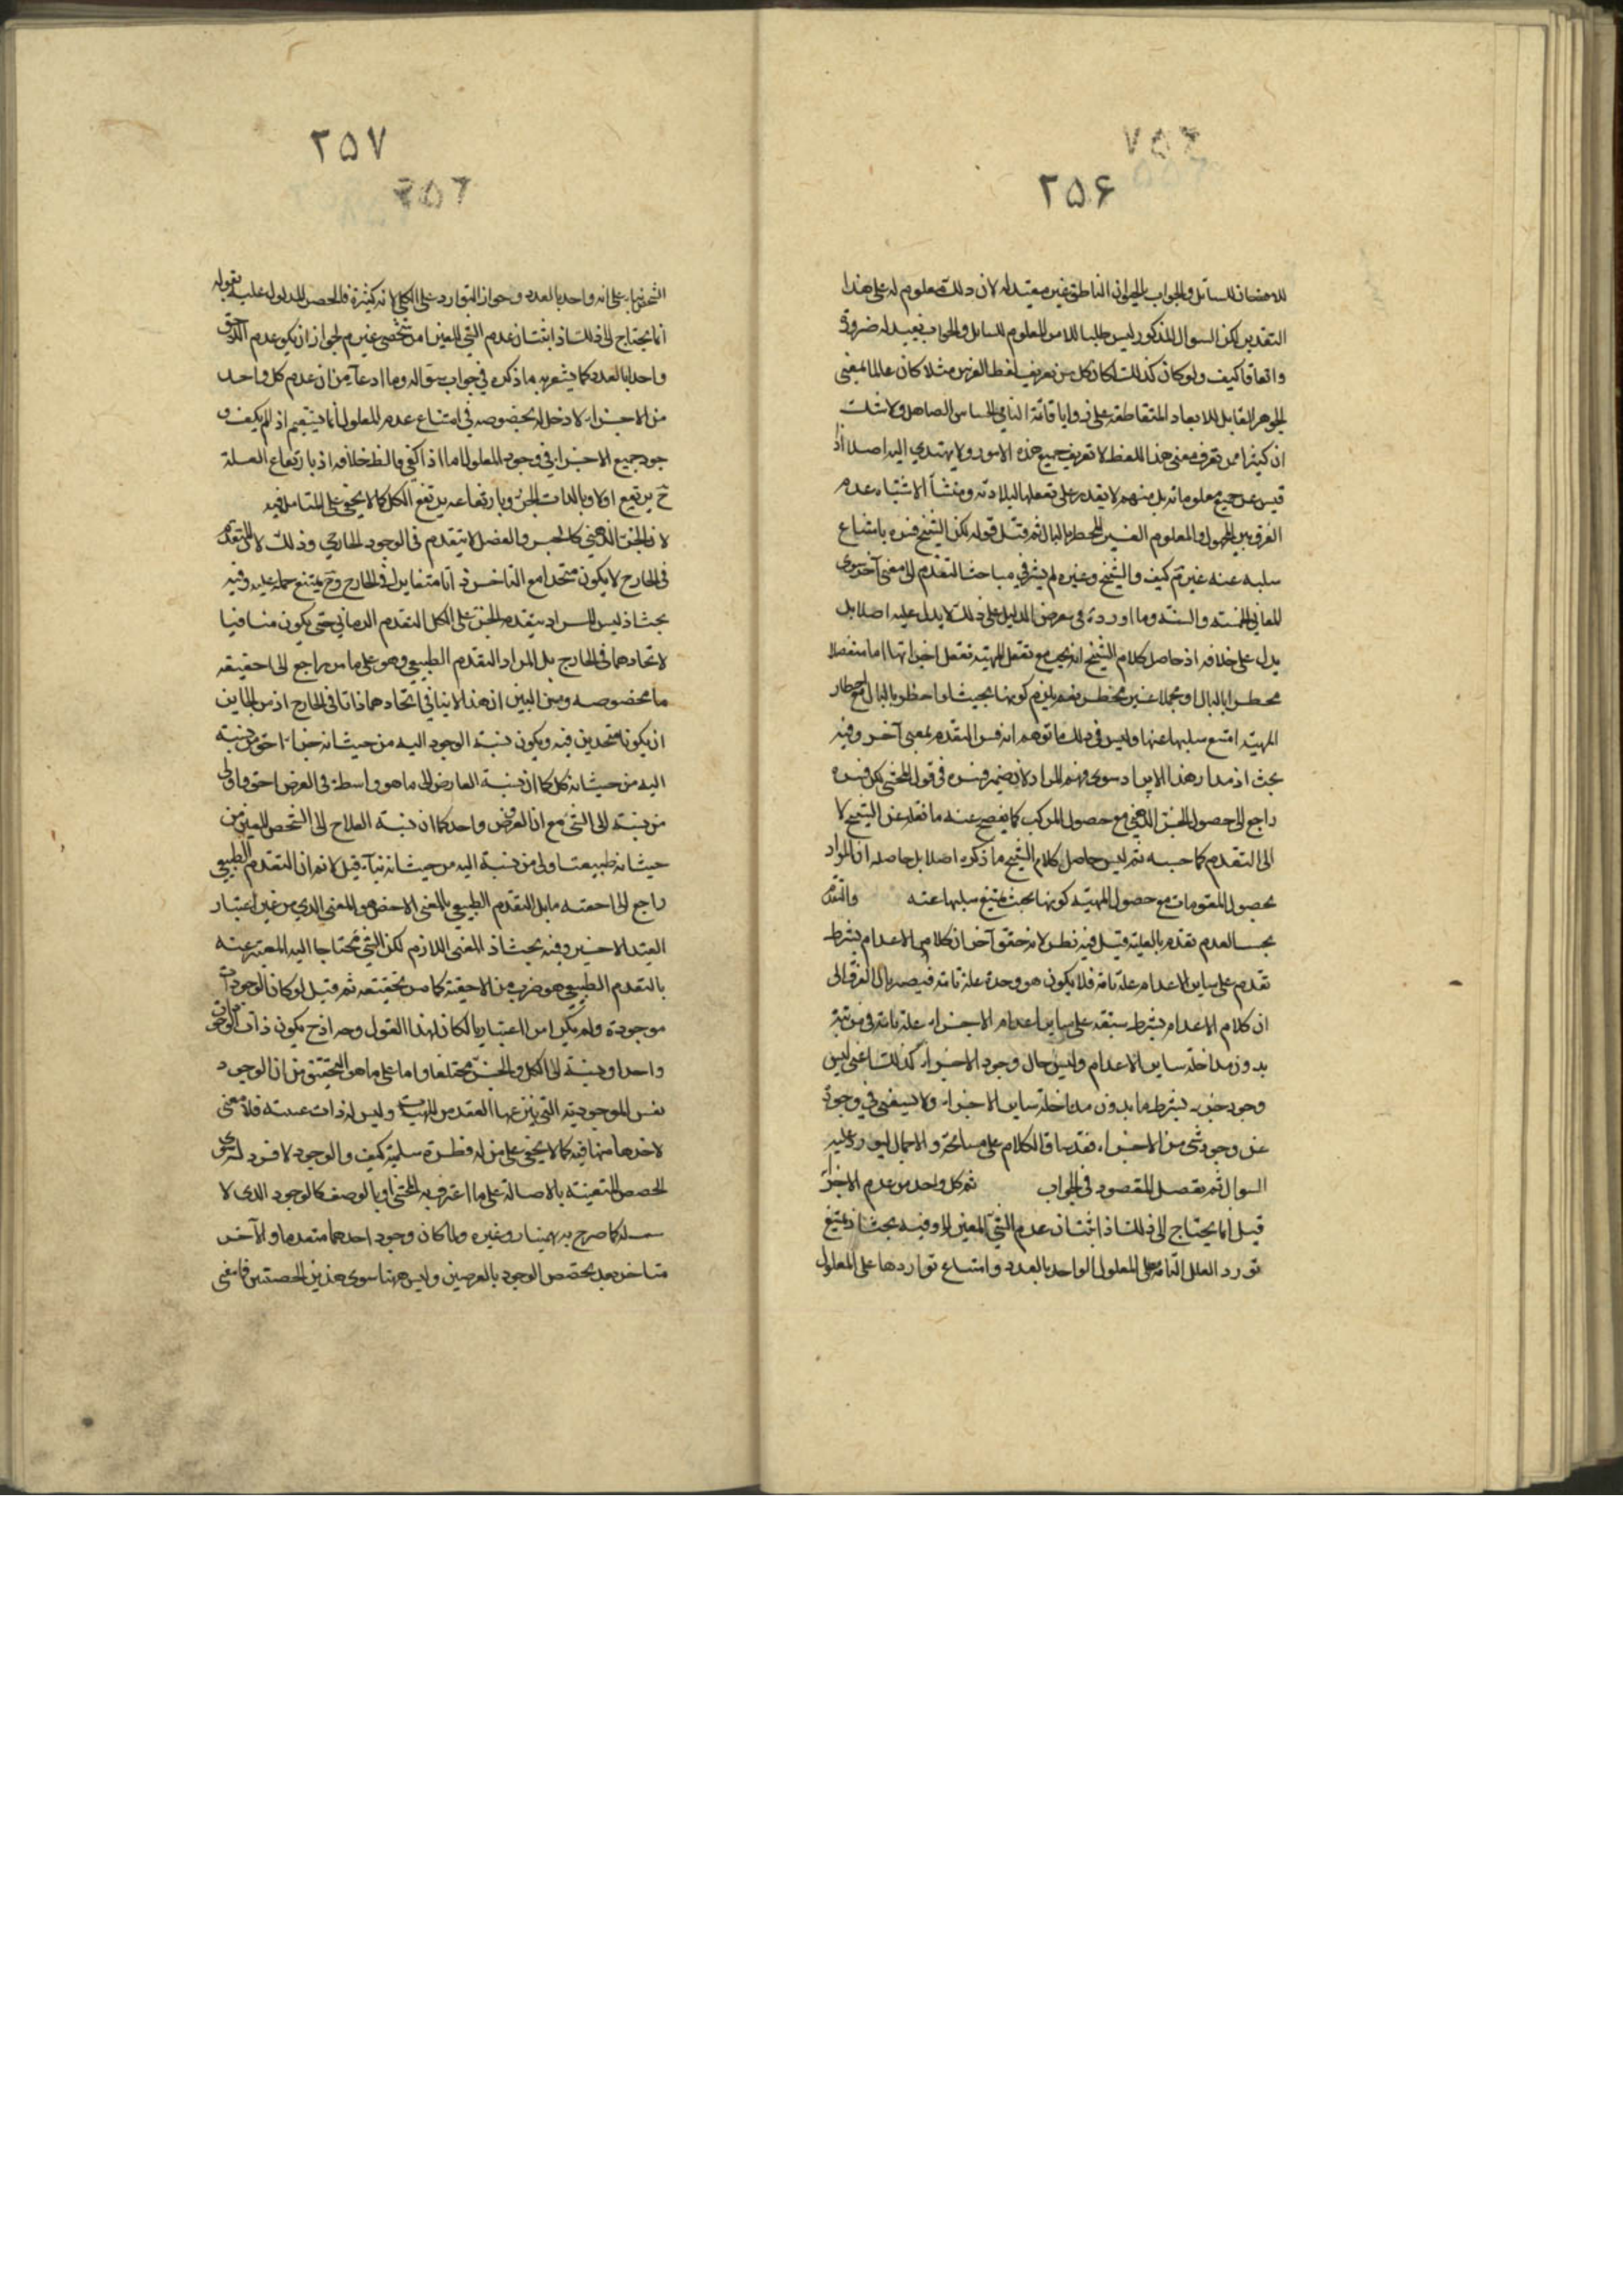 ۲۵۶
للامضان للسائل والجواب بالحيوان الناطق غير مفيد له لان ذلك معلوم له على هذا
التقدير لكن السوال المذكور ليس طلبا للامر المعلوم للسايل والجواب يفيد له ضرورة
واتفاقا كيف ولو كان كذلك لكان كل من يعرف لفظ الفرس مثلا كان عالما بمعنى
الجوهر القابل للابعاد المتقاطعة على زوايا قائمة النامي الحساس الصاهل ولا شك
ان كثيرا ممن يعرف معنى هذا اللفظ لا يعرف جميع هذه الامور ولا يهتدي اليه اصلا اذ
جميع معلوماته بل منهم لا يقدر على تعقلها لبلادته ومنشأ الاشتباه عدم
الفرق بين المجهول والمعلوم الغير المخطر بالبال ثم قيل قوله لكن الشيخ فسره بامتناع
سلبه عنه غير تم كيف والشيخ وغيره لم يشر في مباحث التقدم الى معنى آخر سوى
المعاني الخمسة والستة وما اورده في معرض الدليل على ذلك لا يدل عليه اصلا بل
يدل على خلافه اذ حاصل كلام الشيخ انه يجب مع تعقل المهية تعقل اجزائها اما منفصلا
مخطرا بالبال او مجملا غير مخطر نعم يلزم كونها بحيث لو اخطر بالبال مع اخطار
المهية امتنع سلبها عنها وليس في ذلك ما توهم انه فسر التقدم بمعنى آخر وفيه
بحث اذ مدار هذا الايراد سوء فهم المراد لان ضمير فسره في قول المحشي لكن فسره
راجع الى حصول الجزء الذهني مع حصول المركب كما يفصح عنه ما نقله عن الشيخ لا
الى التقدم كما حسبه ثم ليس حاصل كلام الشيخ ما ذكره اصلا بل حاصله ان المراد
بحصول المقومات مع حصول المهية كونها بحيث يمتنع سلبها عنه والتقدم
بحسب العدم تقدم بالعلية قيل فيه نظر لانه حقق آخرا ان كلا من الاعدام بشرط
تقدم على ساير الاعدام علة تامة فلا يكون هو وحدة علة تامة فيصير مال الفرق الى
ان كلا من الاعدام بشرط سبقه على ساير اعدام الاجزاء علة تامة في مرتبة
بدون مداخلة ساير الاعدام وليس حال وجود الاجزاء كذلك اعني ليس
وجود جزء بشرط ما بدون مداخلة ساير الاجزاء ولا يستغني في وجوده
عن وجود شئ من الاجزاء فقد ساق الكلام على مسامحة والاجمال ليورد عليه
السوال ثم يفصل المقصود في الجواب ثم كل واحد من عدم الاجزاء
قيل انما يحتاج الى ذلك اذا ثبت ان عدم الشئ المعين اه وفيه بحث اذ يمتنع
تورد العلل التامة على المعلول الواحد بالعدد وامتناع تواردها على المعلول
۲۵۷
الشخص بناء على انه واحد بالعدد وجواز التوارد على الكلي لانه كثيرة فالحصر المدلول عليه بقوله
انما يحتاج الى ذلك اذا ثبت ان عدم الشئ المعين امر شخصي غير م لجواز ان يكون عدم
واحدا بالعدد كما يشعر به ما ذكره في جواب سواله وما ادعاه من ان عدم كل واحد
من الاجزاء لا دخل له بخصوصه في امتناع عدم المعلول انما يستقيم اذ لم يكف و
جود جميع الاجزاء في وجود المعلول اما اذا كفى فالظ خلافه اذ بارتفاع العلة
ح يرتفع اولا وبالذات الجزء وبارتفاعه يرتفع الكل كما لا يخفى على المتامل فيه
لان الجزء الذهني كالجنس والفصل لا يتقدم في الوجود الخارجي وذلك لان المتقدم
في الخارج لا يكون متحدا مع المتاخر ذاتا متغايران في الخارج وح يمتنع حمله عليه وفيه
بحث اذ ليس المراد بتقدم الجزء على الكل التقدم الزماني حتى يكون منافيا
لاتحادهما في الخارج بل المراد التقدم الطبيعي وهو على ما مر راجع الى احقية
ما مخصوصه ومن البين ان هذا لا ينافي اتحادهما ذاتا في الخارج اذ من الجاين
ان يكونا متحدين فيه ويكون نسبة الوجود اليه من حيث انه جزء احق من نسبة
اليه من حيث انه كل كما ان نسبة العارض الى ما هو واسطة في العرض احق واولى
من نسبته الى الشئ مع ان المعروض واحد كما ان نسبة العلاج الى الشخص المعين من
حيث انه طبيب اولى من نسبة اليه من حيث انه بناء قيل لانم ان التقدم الطبيعي
راجع الى احقية ما بل التقدم الطبيعي بالمعنى الاخص هو المعنى الذي من غير اعتبار
القيد الاخير وفيه بحث اذ المعنى اللازم لكن الشئ محتاجا اليه المعبر عنه
بالتقدم الطبيعي هو ضرب من الاحقية كما مر تحقيقه ثم قيل لو كان الوجودات
موجودة ولم يكن امرا اعتباريا لكان لهذا القول وجه اذ ح يكون ذات الوجود
واحدا ونسبته الى الكل والجزء مختلفا واما على ما هو التحقيق من ان الوجود
نفس الموجودية التي ينتزعها العقل من المهيات وليس له ذات عينية فلا معنى
لاحدهما منهما فيه كما لا يخفى على من له فطرة سليمة كيف والوجود لا فرد له سوى
الحصص المتعينة بالاصالة على ما اعترف به المحشي او بالوصف كالوجود الذي لا
له كما صرح به بهمنيار وغيره ولما كان وجود احدهما متقدما والآخر
متاخر بعد تخصص الوجود بالعرضين وليس ههنا سوى هذين الحصتين فا معنى